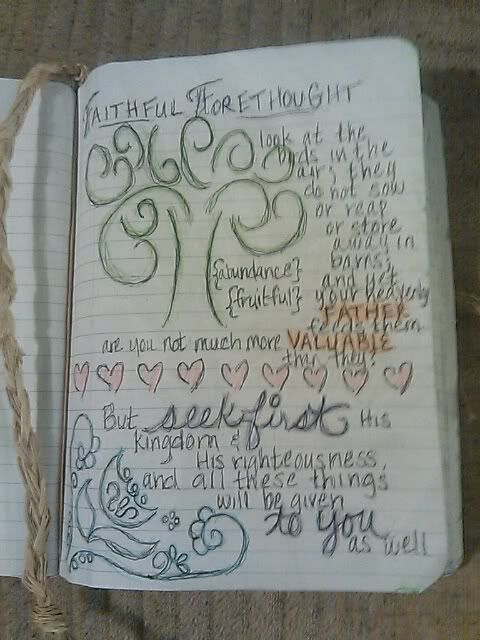 FAITHFUL FORETHOUGHT
look at the
birds in the
air; they
do not sow
or reap
or store
away in
barns;
and yet
your heavenly
FATHER
feeds them
{abundance}
{fruitful}
are you not much more VALUABLE
than they?
But seek first His
kingdom &
His righteousness,
and all these things
will be given
to you
as well